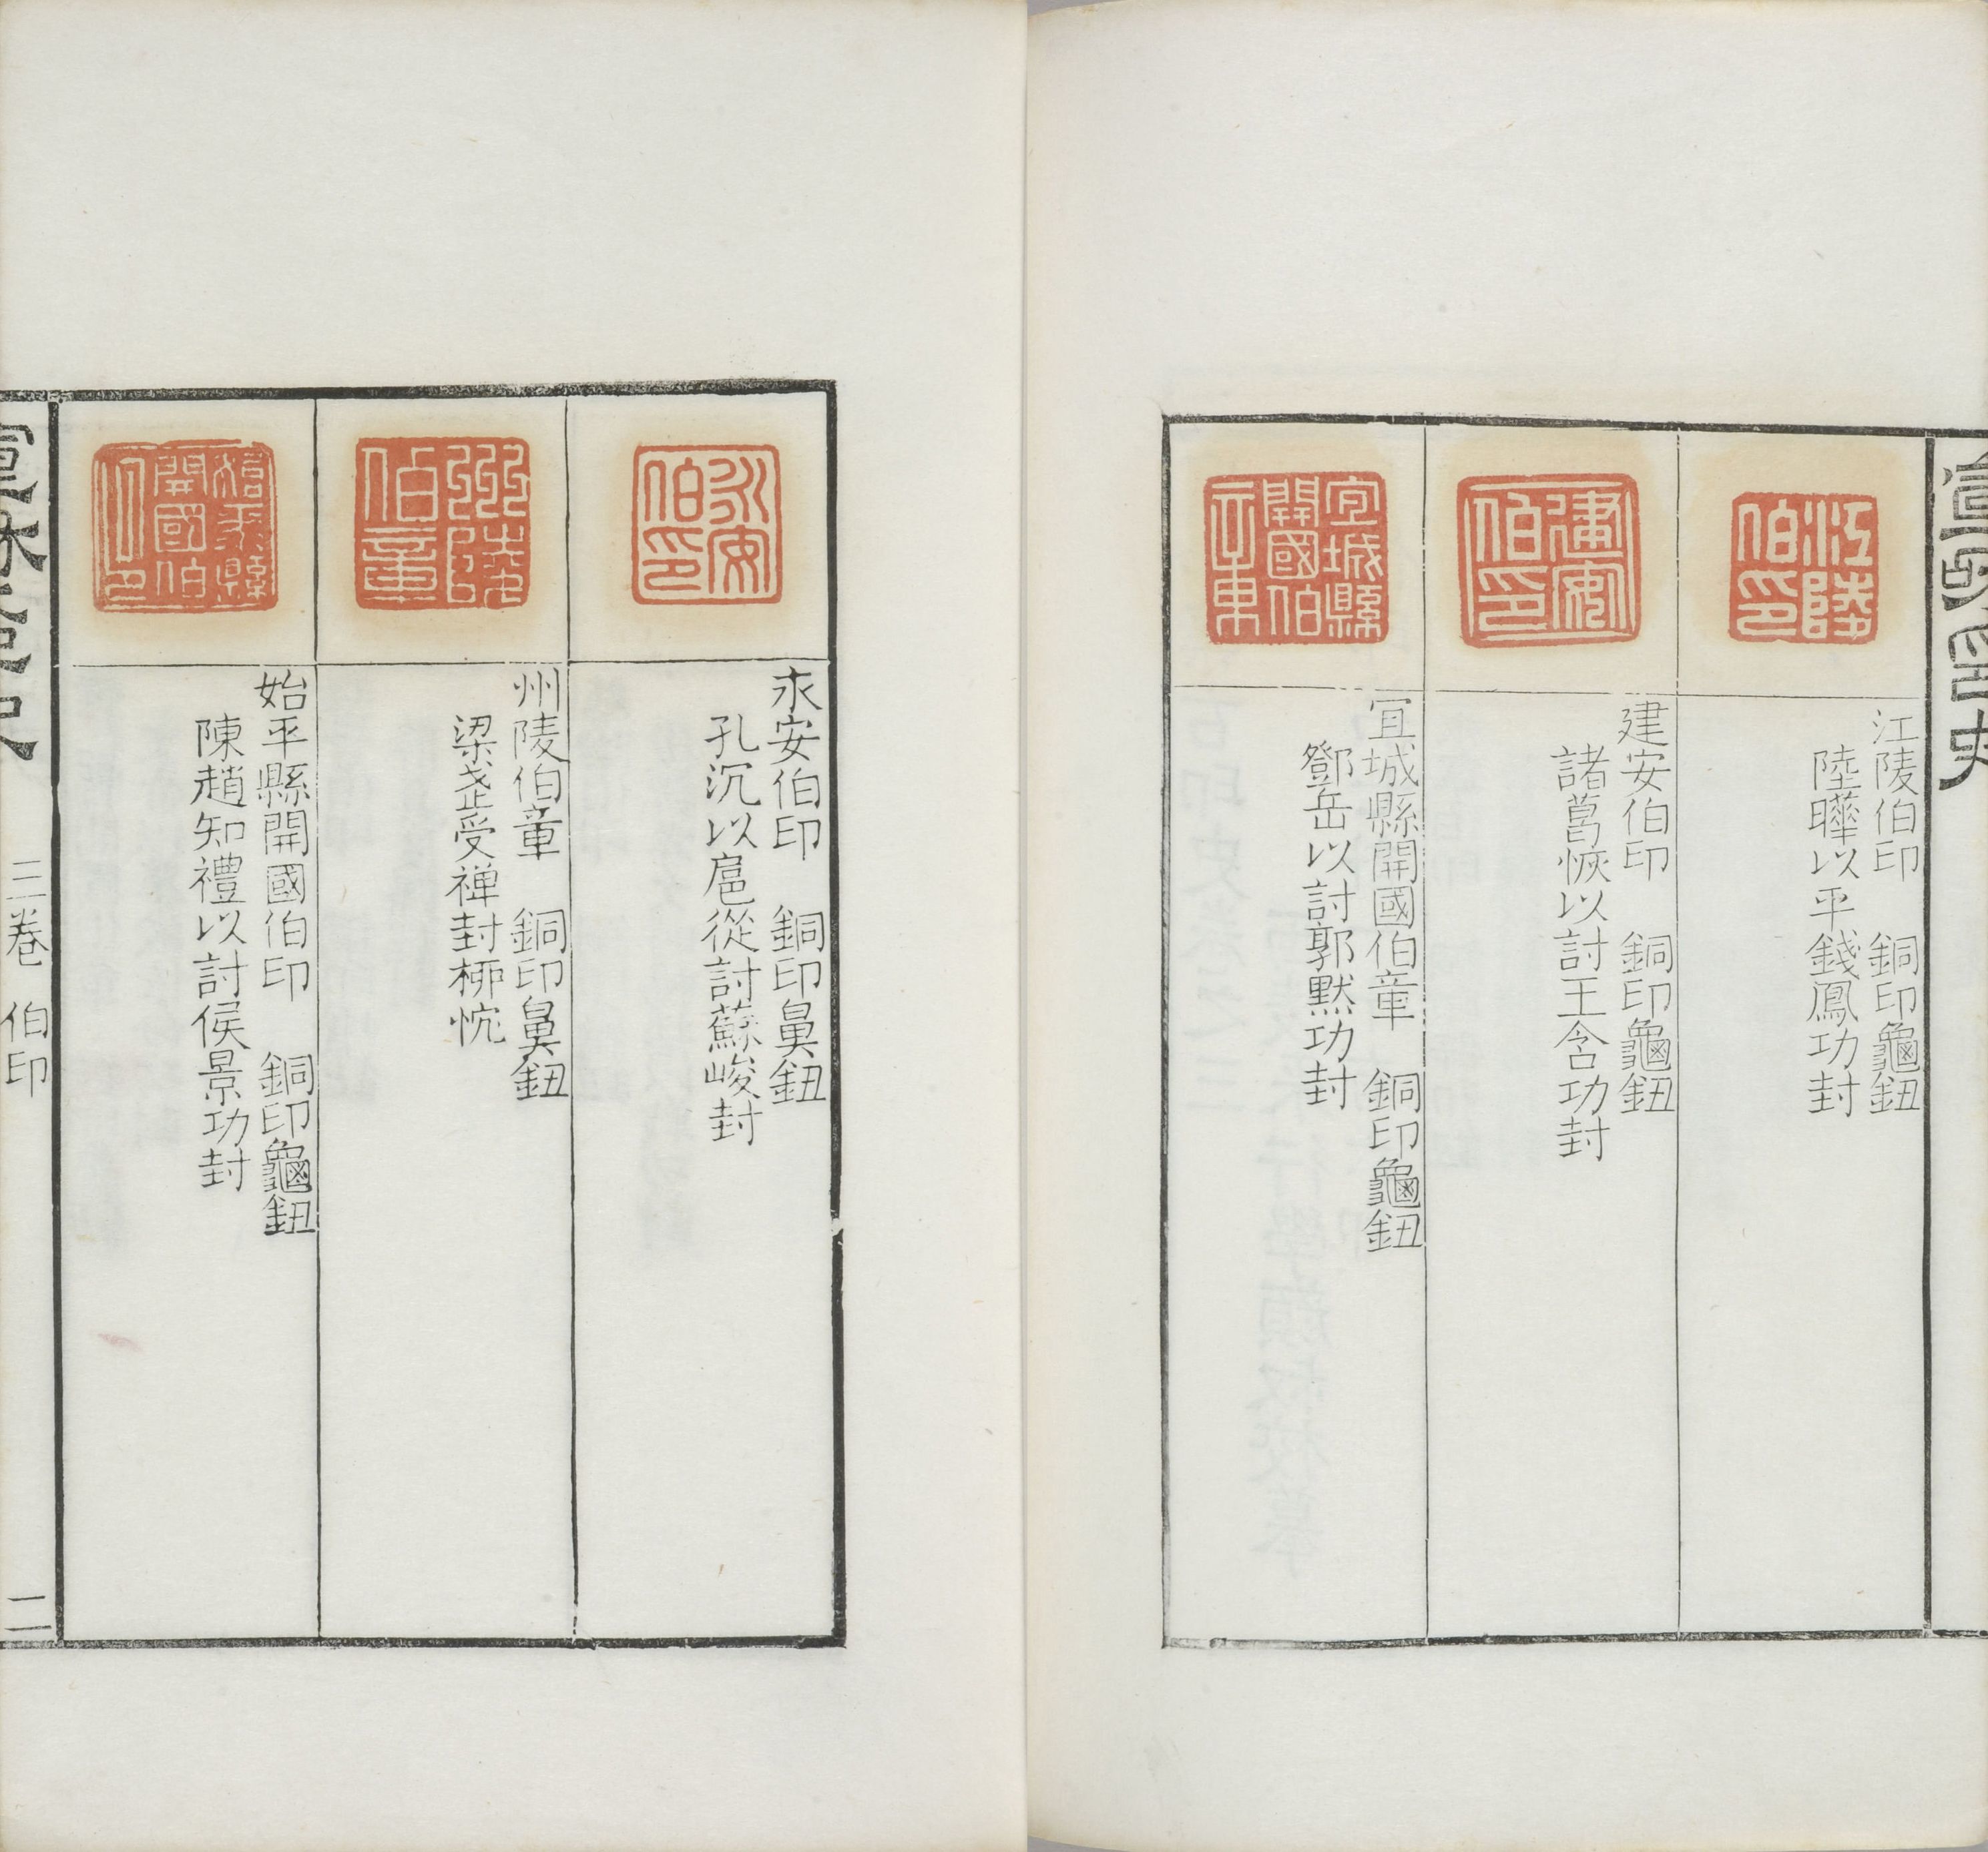 宣和印史
江陵伯印
江陵伯印 銅印龜鈕
陸曄以平錢鳳功封
建安伯印
建安伯印 銅印龜鈕
諸葛恢以討王含功封
宜城縣開國伯章
宜城縣開國伯章 銅印龜鈕
鄧岳以討郭默功封
永安伯印
永安伯印 銅印鼻鈕
孔沉以扈從討蘇峻封
州陵伯章
州陵伯章 銅印鼻鈕
梁武受禅封柳忱
始平縣開國伯印
始平縣開國伯印 銅印龜鈕
陳趙知禮以討侯景功封
宣和印史
三卷 伯印
二